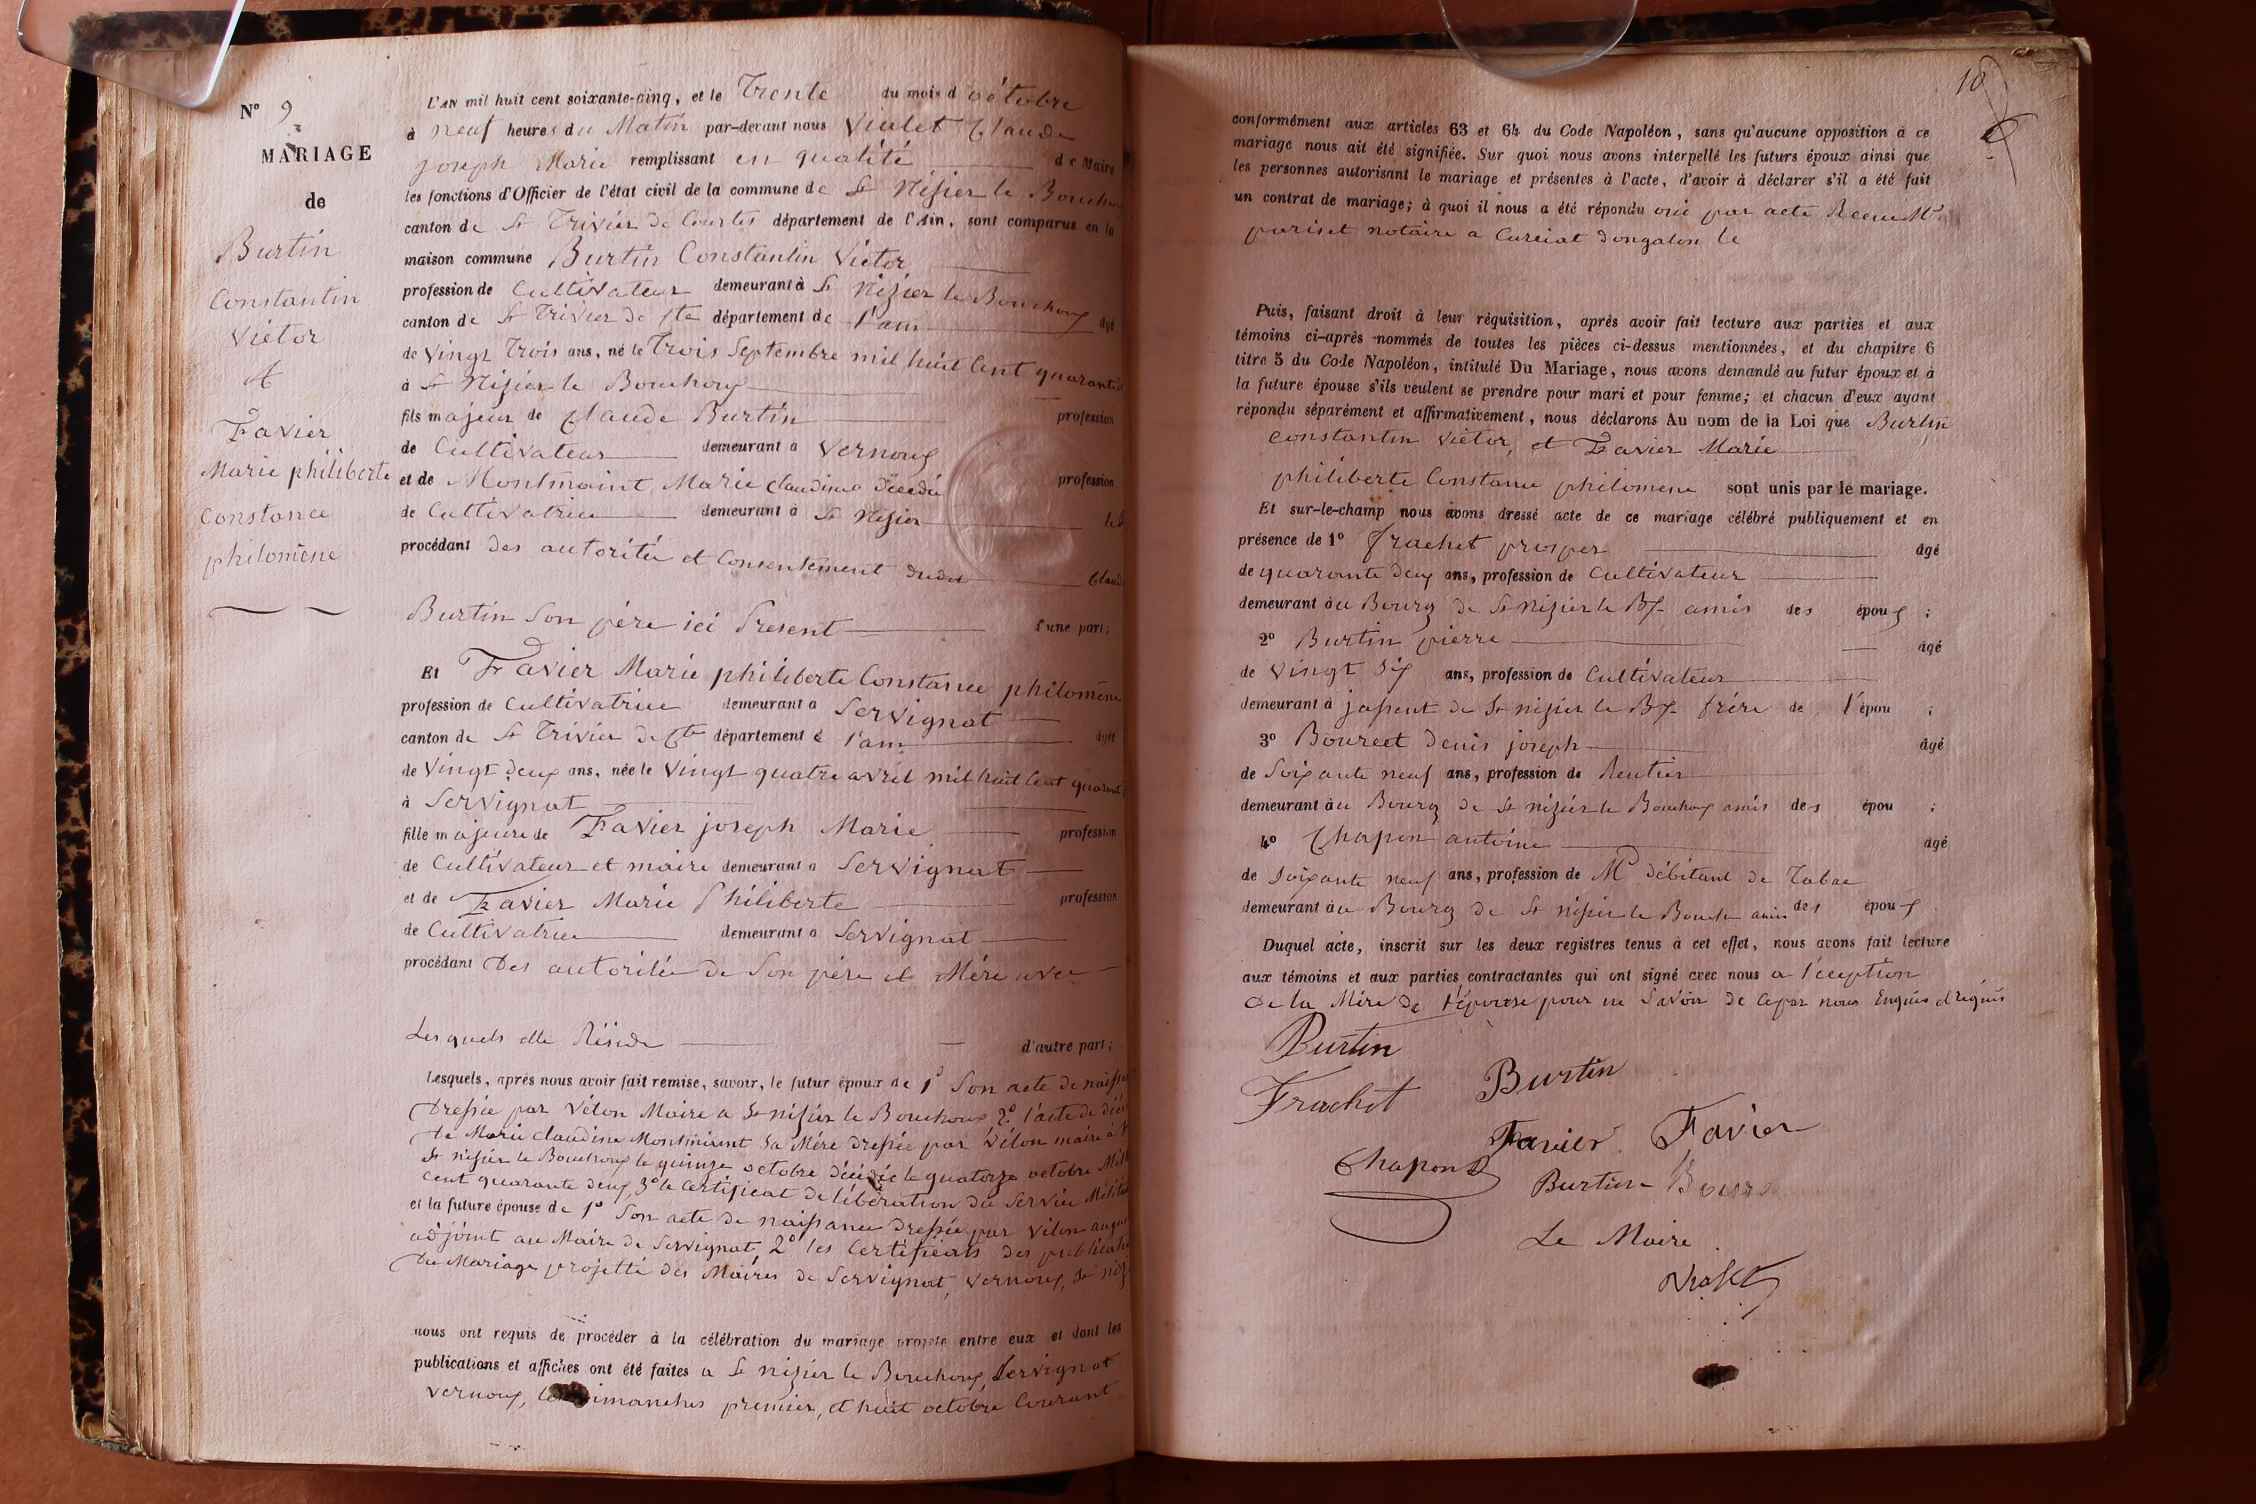 Nº 9
MARIAGE
de
Burtin
Constantin
Victor
et
Favier
Marie philiberte
Constance
philomène
L'AN mil huit cent soixante-cinq, et le Trente du mois d'octobre
à neuf heures du Matin par-devant nous Violet Claude
joseph Marie remplissant en qualité de Maire
les fonctions d'Officier de l'état civil de la commune de St Nizier le Bouchoux
canton de St Trivier de Courtes département de l'Ain, sont comparus en la
maison commune Burtin Constantin Victor
profession de Cultivateur demeurant à St Nizier le Bouchoux
canton de St Trivier de Cte département de l'ain âgé
de Vingt Trois ans, né le Trois Septembre mil huit Cent quarante
à St Nizier le Bouchoux
fils majeur de Claude Burtin profession
de Cultivateur demeurant à Vernoux
et de Montmaint Marie claudine décédée profession
de Cultivatrice demeurant à St Nizier
procédant des autorités et Consentement dudit Claude
Burtin Son père ici Présent d'une part;
Et Favier Marie philiberte Constance philomène
profession de Cultivatrice demeurant à Servignat
canton de St Trivier de Cte département d l'ain âgée
de Vingt deux ans, née le Vingt quatre avril mil huit Cent quarante
à Servignat
fille majeure de Favier joseph Marie profession
de Cultivateur et maire demeurant à Servignat
et de Favier Marie Philiberte profession
de Cultivatrice demeurant à Servignat
procédant Des autoritées de Son père et Mère avec
Lesquels elle Réside d'autre part;
Lesquels, après nous avoir fait remise, savoir, le futur époux de 1º Son acte de naissance
Dressée par Vélon Maire a St nizier le Bouchoux 2º l'acte de décès
de Marie claudine Montmaint Sa Mère dressée par Vélon maire à
St nizier le Bouchoux le quinze octobre décédée le quatorze octobre Mil
Cent quarante deux, 3º le Certificat de libération du Service Militaire
et la future épouse de 1º Son acte de naissance dressée par Vélon
adjoint au Maire de Servignat, 2º les Certificats des publications
du Mariage projetté des Maires de Servignat, Vernoux, St nizier
nous ont requis de procéder à la célébration du mariage projeté entre eux et dont les
publications et affiches ont été faites a St nizier le Bouchoux, Servignat
Vernoux, les Dimanches premier, et huit octobre Courant
10
conformément aux articles 63 et 64 du Code Napoléon, sans qu'aucune opposition à ce
mariage nous ait été signifiée. Sur quoi nous avons interpellé les futurs époux ainsi que
les personnes autorisant le mariage et présentes à l'acte, d'avoir à déclarer s'il a été fait
un contrat de mariage; à quoi il nous a été répondu oui par acte Recu Mtre
pariset notaire a Curciat dongalon le
Puis, faisant droit à leur réquisition, après avoir fait lecture aux parties et aux
témoins ci-après nommés de toutes les pièces ci-dessus mentionnées, et du chapitre 6
titre 5 du Code Napoléon, intitulé Du Mariage, nous avons demandé au futur époux et à
la future épouse s'ils veulent se prendre pour mari et pour femme; et chacun d'eux ayant
répondu séparément et affirmativement, nous déclarons Au nom de la Loi que Burtin
constantin victor, et Favier Marie
philiberte Constance philomene sont unis par le mariage.
Et sur-le-champ nous avons dressé acte de ce mariage célébré publiquement et en
présence de 1º frachet prosper âgé
de quarante deux ans, profession de Cultivateur
demeurant au Bourg de St nizier le Bx amis des époux ;
2º Burtin pierre âgé
de Vingt Six ans, profession de Cultivateur
demeurant à jassent de St nizier le Bx frère de l'épou ;
3º denis joseph âgé
de Soixante neuf ans, profession de Rentier
demeurant au Bourg de St nizier le Bouchoux amis des épou ;
4º Chapon antoine âgé
de Soixante neuf ans, profession de Md débitant de Tabac
demeurant au Bourg de St nizier le Bouch amis des époux
Duquel acte, inscrit sur les deux registres tenus à cet effet, nous avons fait lecture
aux témoins et aux parties contractantes qui ont signé avec nous a l'éception
de la Mère de l'épouse pour ne Savoir de ce par nous Enquis et requis
Burtin
Frachet Burtin
Favier Favier
Chapon
Burtin
Le Maire
Violet